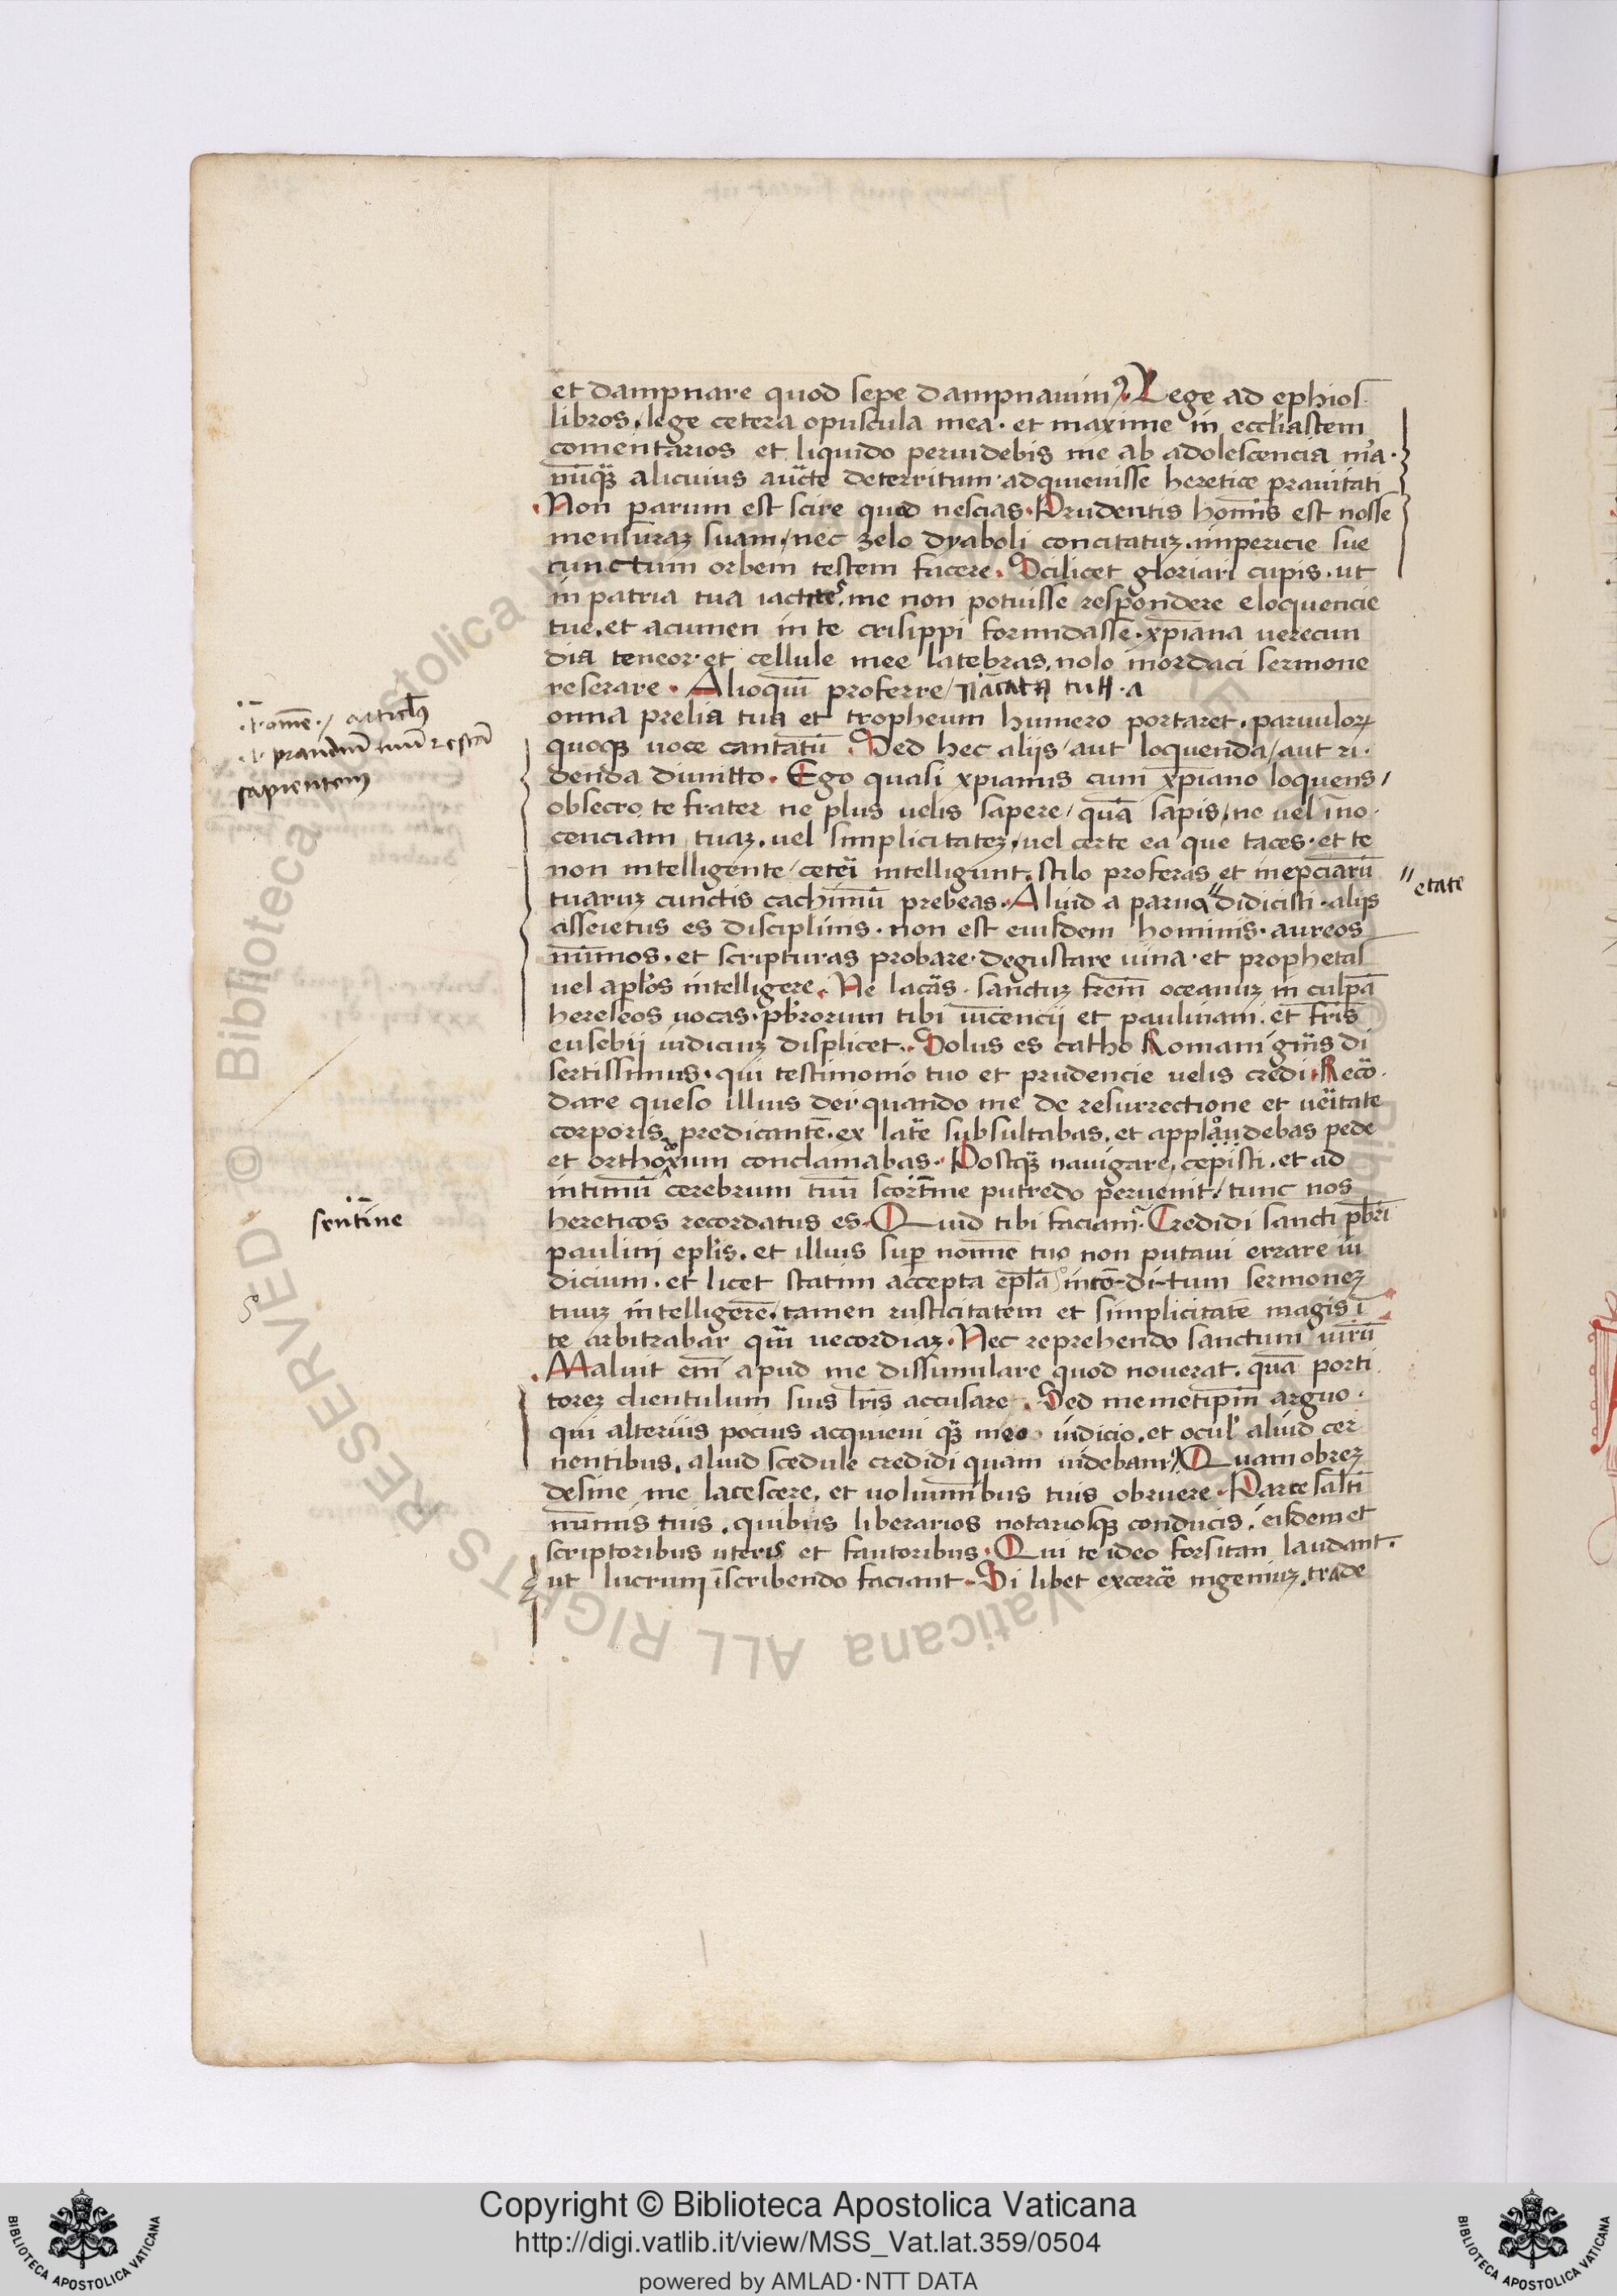 et dampnare quod sepe dampnauim⁹? Lege ad ephios
libros. lege cetera opuscula mea. et maxime in eccl'iastem
comentarios et liquido peruidebis me ab adolescencia mea.
nūq̄ alicuius aūcte deterritum adquieuisse heretice prauitati
Non parum est scire quod nescias. Prudentis homīs est nosse
mensuraʒ suam / nec zelo dyaboli concitatuʒ. impericie sue
cunctum orbem testem facere. Scilicet gloriari cupis. ut
in patria tua me non potuisse respondere eloquencie
tue. et acumen in te crisippi formidasse. xp̄iana uerecun
dia teneor. et cellule mee latebras. nolo mordaci sermone
reserare. Alioquī proferre /
omnia prelia tua et tropheum humero portaret. paruuloꝝ
quoqʒ uoce cantatū. Sed hec alijs / aut loquenda / aut ri.
denda dimitto. Ego quasi xp̄ianus cum xp̄iano loquens /
obsecro te frater ne plus uelis sapere / quā sapis / ne uel īno.
cenciam tuaʒ. uel simplicitateʒ / uel certe ea que taces. et te
non intelligente / ceteri intelligunt. stilo proferas et inepciarū
tuaruʒ cunctis cachinnū prebeas. Aliud a parua didicisti. alijs
assuetus es disciplinis. non est eiusdem hominis. aureos
nūmos. et scripturas probare. degustare uina. et prophetas
uel apl'os intelligere. Ne lac̄as. sanctuʒ frēm oceanuʒ in culpā
hereseos uocas. pb̄rorum tibi uīcencii et pauliniani. et fr̄is
eusebii iudiciuʒ displicet. Solus es catho Romani gn̄is di
sertissimus. qui testimonio tuo et prudencie uelis credi. Recō.
dare queso illius dei quando me de resurrectione et uēitate
corporis predicantē. ex lat̄e subsultabas. et applaudebas pede
et orthodoxum conclamabas. Postq̄ nauigare cepisti. et ad
intimū cerebrum tuū putredo peruenit / tunc nos
hereticos recordatus es. Quid tibi faciam? Credidi sancti pb̄ri
paulini epl'is. et illius sup̄ nomīe tuo non putaui errare iu
dicium. et licet statim accepta ep̄la incōditum sermoneʒ
tuuʒ intelligerē. tamen rusticitatem et simplicitatē magis ī
te arbitrabar qm̄ uecordiaʒ. Nec reprehendo sanctum uirū
Maluit em̄ apud me dissimulare quod nouerat. quā porti
toreʒ clientulum suis lr̄is accusare. Sed memetip̄m arguo.
qui alterius pocius acquieui q̄ meo iudicio. et ocul' aliud cer
nentibus. aliud scedule credidi quam uidebam? Quamobreʒ
desine me lacescere. et uoluminibus tuis obruere. Parce saltī
nūmis tuis. quibus liberarios notariosqʒ conducis. eisdem et
scriptoribus uteris et fautoribus. Qui te ideo forsitan laudant.
ut lucrum īscribendo faciant. Si libet exerc̄e ingeniuʒ. trade
prandiū tuū
sapientem
etate
sentīne
Copyright © Biblioteca Apostolica Vaticana
http://digi.vatlib.it/view/MSS_Vat.lat.359/0504
powered by AMLAD·NTT DATA
BIBLIOTECA APOSTOLICA VATICANA
BIBLIOTECA APOSTOLICA VATICANA
© Biblioteca Apostolica Vaticana ALL RIGHTS RESERVED